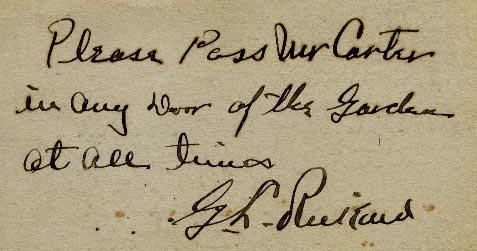 Please Pass Mr Carter
in any Door of the Garden
at all times
G L Rickard